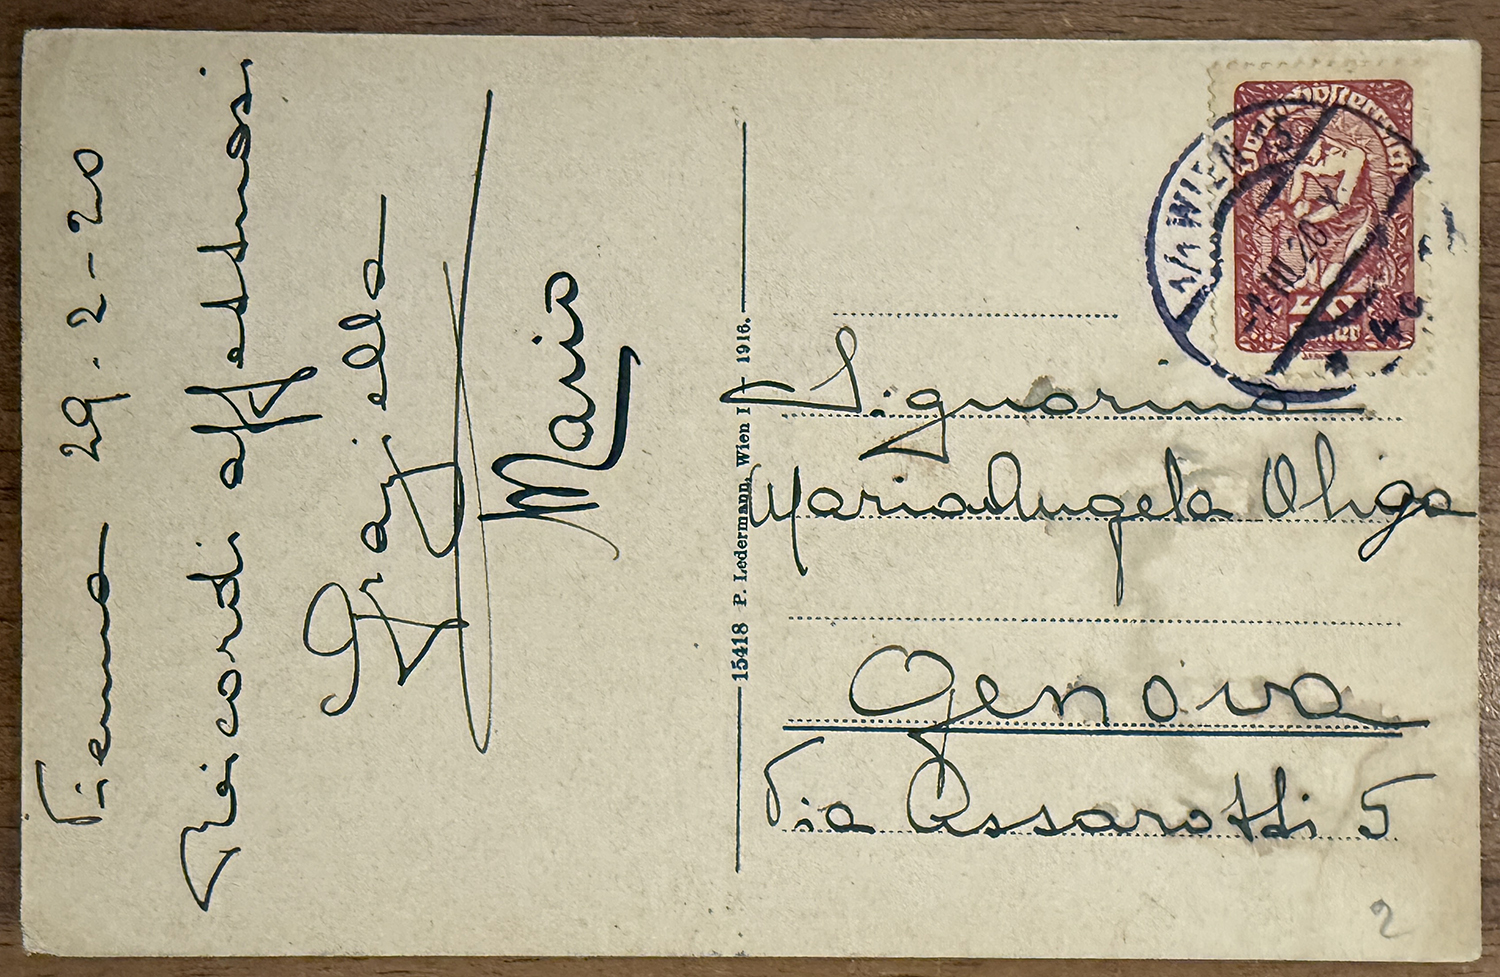 Vienna 29-2-20
Ricordi affettuosi
Graziella
Mario
15418 P. Ledermann, Wien I — 1916.
Deutschösterreich
40
Heller
1/1 WIEN 15
III. 20
Signorina
Mariangela Oliga
Genova
Via Assarotti 5
2